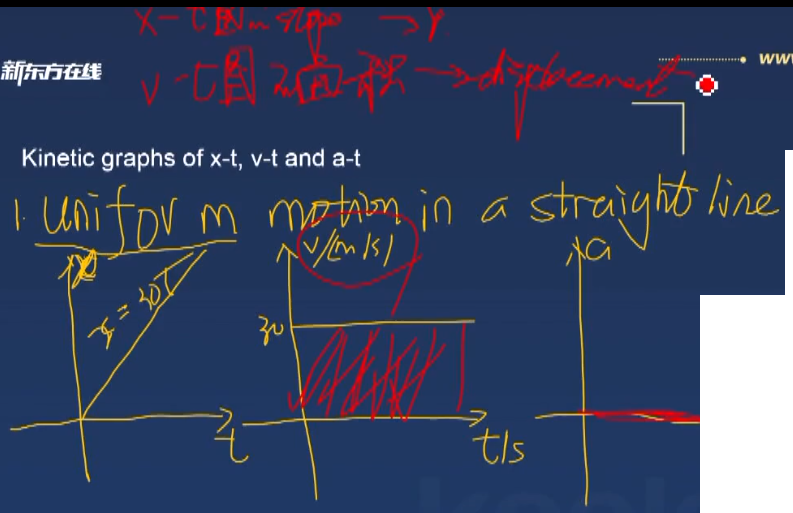 x-t图 slope → v
新东方在线
v-t图 面积 → displacement
www
Kinetic graphs of x-t, v-t and a-t
1. Uniform motion in a straight line
x v/(m/s) a
x=30t
30
t t/s